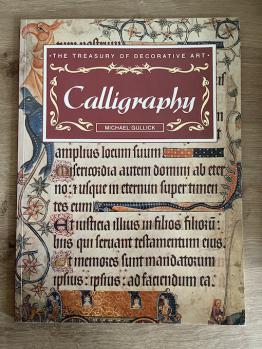 · THE TREASURY OF DECORATIVE ART ·
Calligraphy
MICHAEL GULLICK
amplius locum suum
Misericordia autem domini ab eter
no: et usque in eternum super timen
tes eum
Et iusticia illius in filios filiorū:
hiis qui seruant testamentum eius.
Et memores sunt mandatorum
ipsius: ipsius: ad faciendum ea.